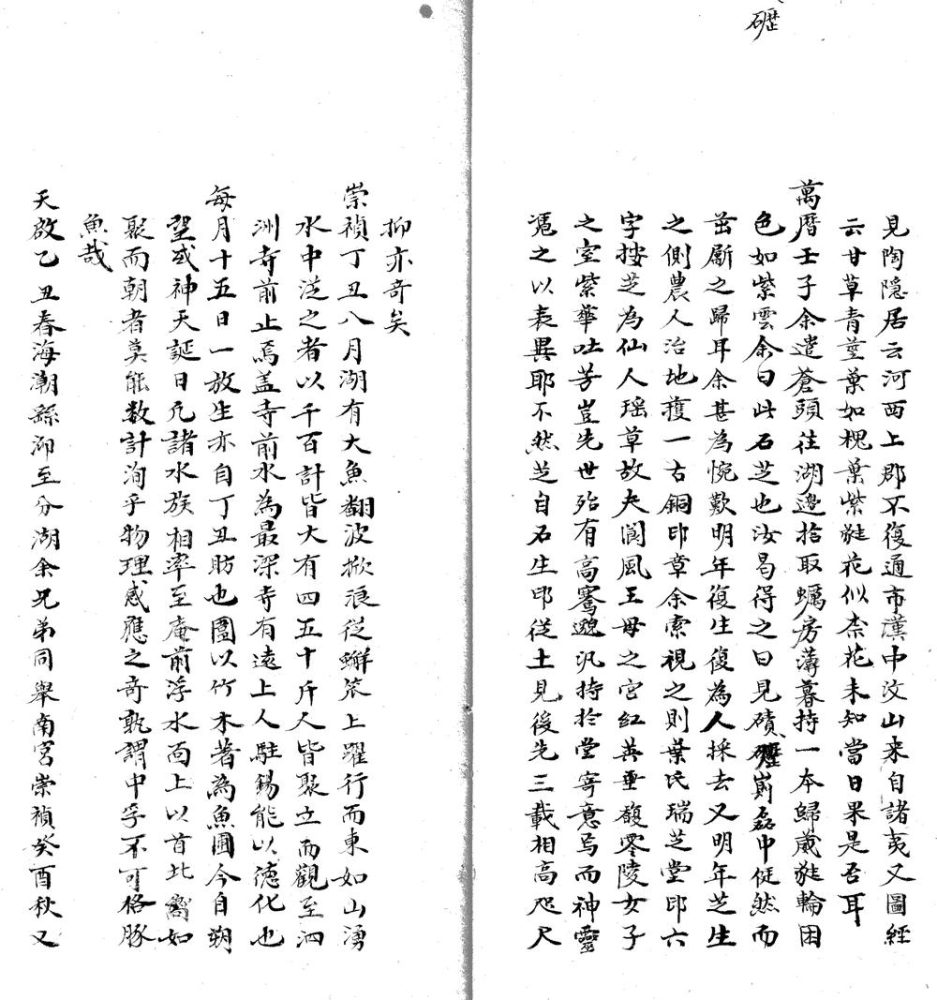 礰
見陶隱居云河西上郡不復通市漢中汶山来自諸夷又圖經
云甘草青莖葉如槐葉紫蕤花似柰花未知當日果是否耳
萬曆壬子余遣蒼頭往湖邊拾取蠣房薄暮持一本歸葳蕤輪囷
色如紫雲余曰此石芝也汝曷得之曰見磧礰崱磊中倐然而
茁斸之歸耳余甚為惋歎明年復生復為人採去又明年芝生
之側農人治地獲一古銅印章余索視之則葉氏瑞芝堂印六
字按芝為仙人瑶草故夫閬風王母之宮紅英垂馥零陵女子
之室紫華吐芳豈先世殆有高騫邈汎持於堂寄意焉而神靈
憑之以表異耶不然芝自石生印從土見後先三載相高咫尺
抑亦奇矣
崇禎丁丑八月湖有大魚翻波掀浪従蠏籪上躍行而東如山湧
水中従之者以千百計皆大有四五十斤人皆聚立而觀至泗
洲寺前止焉盖寺前水為最深寺有遠上人駐錫能以徳化也
每月十五日一放生亦自丁丑昉也圍以竹木著為魚圃今自朔
望或神天誕日凡諸水族相率至庵前浮水而上以首北嚮如
聚而朝者莫能数計洵乎物理感應之奇孰謂中孚不可格豚
魚哉
天啟乙丑春海潮繇泖至分湖余兄弟同舉南宮崇禎癸酉秋又